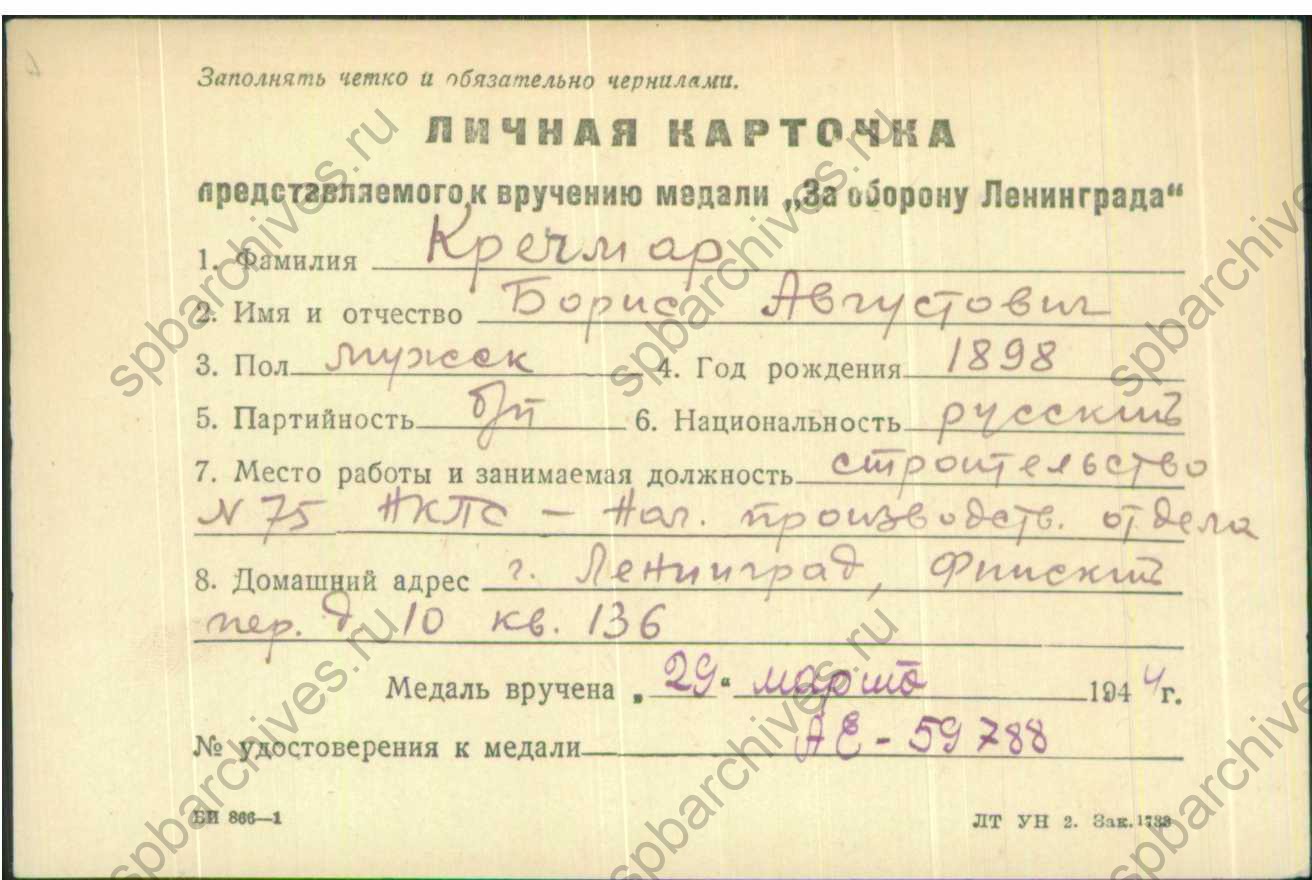 Заполнять четко и обязательно чернилами.
ЛИЧНАЯ КАРТОЧКА
представляемого к вручению медали „За оборону Ленинграда“
1. Фамилия Кречмар
2. Имя и отчество Борис Августович
3. Пол мужск 4. Год рождения 1898
5. Партийность б/п 6. Национальность русский
7. Место работы и занимаемая должность строительство
N 75 НКПС – Нач. производств. отдела
8. Домашний адрес г. Ленинград, Финский
пер. д 10 кв. 136
Медаль вручена „29“ марта 1944 г.
№ удостоверения к медали АЕ - 59788
БИ 866—1 ЛТ УН 2. Зак. 1733
spbarchives.ru